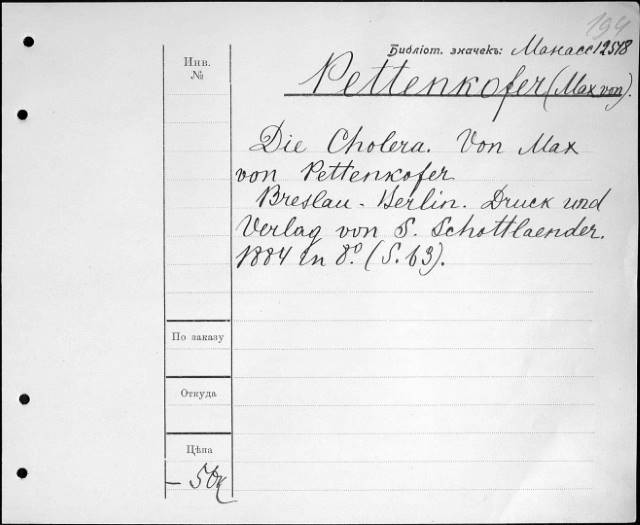 194
Библіот. значекъ: Манасс 12518
Инв.
№
Pettenkofer (Max von).
Die Cholera. Von Max
von Pettenkofer
Breslau - Berlin. Druck und
Verlag von S. Schottlaender.
1884 in 8º. (S. 63).
По заказу
Откуда
Цѣна
- 50к